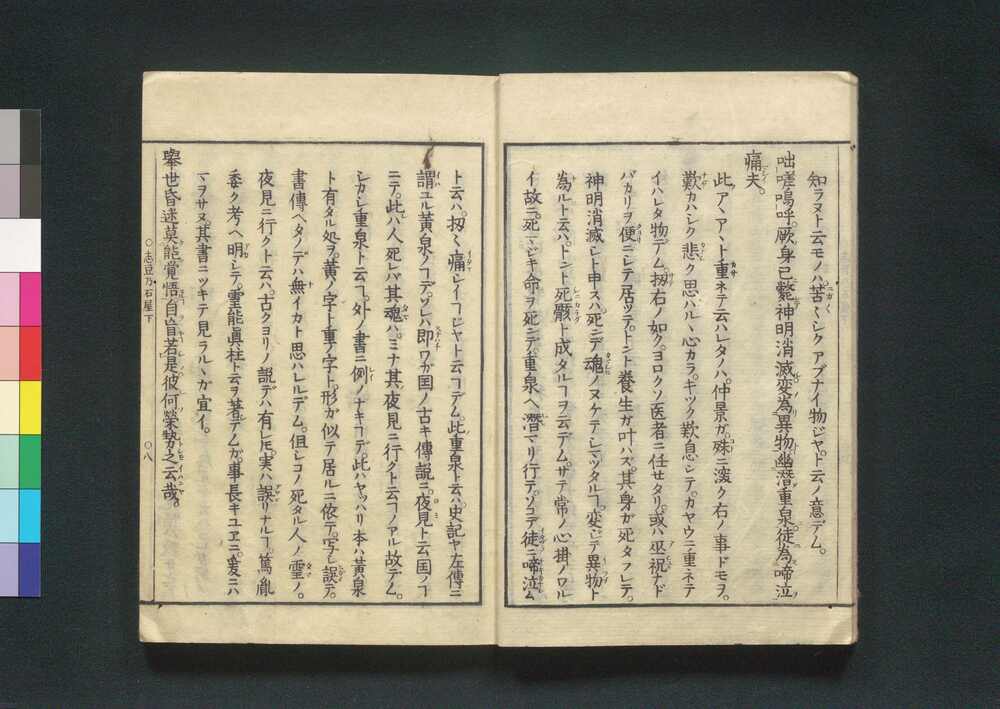 知ラヌト云モノハ苦〻シクアブナイ物ジヤト云ノ意デム。
咄嗟嗚呼。厥身已斃神明消滅変為異物幽潜重泉。徒為啼泣
痛夫。
此アヽアヽト重ネテ云ハレタノハ。仲景ガ。殊ニ深ク右ノ事ドモヲ。
歎カハシク悲ク思ハルヽ心カラ。キツク歎息シテ。カヤウニ重ネテ
イハレタ物デム。扨右ノ如ク。ヨロクソ医者ニ任セタリ。或ハ巫祝ナド
バカリヲ便ニシテ居ツテ。トント養生ガ叶ハズ。其身ガ死タフレテ。
神明消滅シト申スハ。死ニデ魂ノヌケテシマツタルヿ。変ジテ異物ト
為ルト云ハ。トント死骸ト成タルヿヲ云デム。サテ常ノ心掛ノワル
イ故ニ。死マジキ命ヲ死ニデ。重泉ヘ潜マリ行テ。ソコデ徒ニ啼泣ム
ト云ハ。扨〻痛シイヿジヤト云ヿデム。此重泉ト云ハ。史記ヤ左傳ニ
謂ユル黄泉ノヿデ。ソレハ即ワガ国ノ古キ傳説ニ。夜見ト云国ノヿ
ニテ。此ハ人死レバ其魂ハ。ミナ其夜見ニ行クト云ヿノアル故デム。
シカシ重泉ト云ヿ。外ノ書ニ例ノナキヿデ。此ハヤツハリ本ハ黄泉
ト有タル処ヲ。黄ノ字ト重ノ字ト。形ガ似テ居ルニ依テ。写シ誤テ。
書傳ヘタノデハ無イカト思ハレルデム。但シコノ死タル人ノ霊ノ。
夜見ニ行クト云ハ。古クヨリノ説デハ有レ𪜈。実ハ誤リナルヿ。篤胤
委ク考ヘ明シテ。霊能眞柱ト云ヲ著デムガ。事長キユヱニ。爰ニハ
マヲサヌ。其書ニツキテ見ラルヽガ宜イ。
擧世昏迷莫能覚悟。自盲若是彼何榮勢之云哉。
○志豆乃石屋下
○八